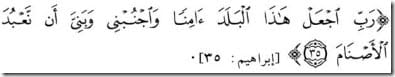 ﴿رَبِّ ٱجۡعَلۡ هَٰذَا ٱلۡبَلَدَ ءَامِنٗا وَٱجۡنُبۡنِي وَبَنِيَّ أَن نَّعۡبُدَ
ٱلۡأَصۡنَامَ ٣٥﴾ [إبراهيم: ٣٥]٠